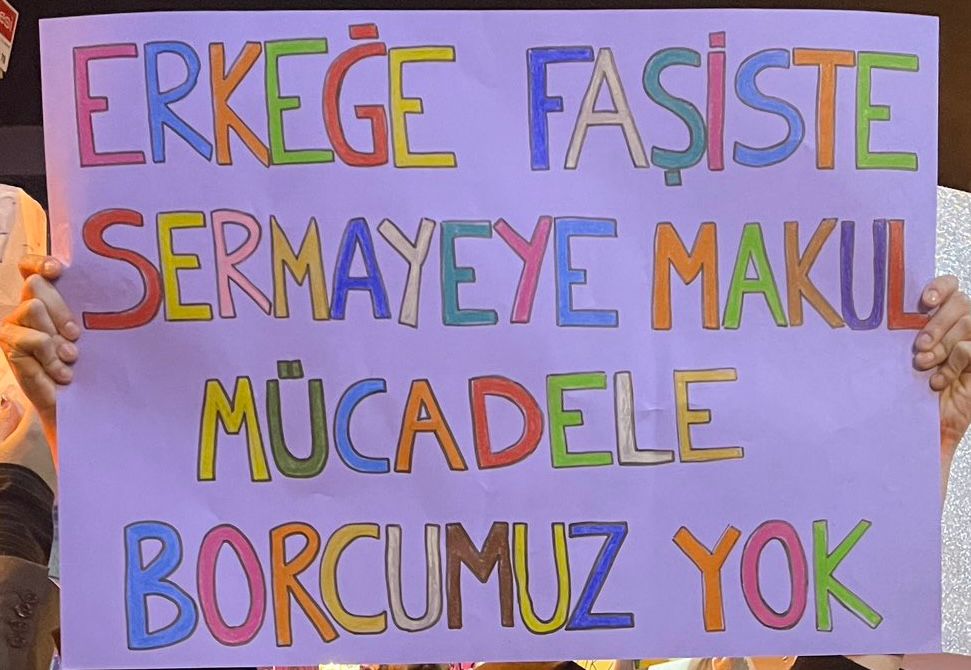 ERKEĞE FAŞİSTE
SERMAYEYE MAKUL
MÜCADELE
BORCUMUZ YOK